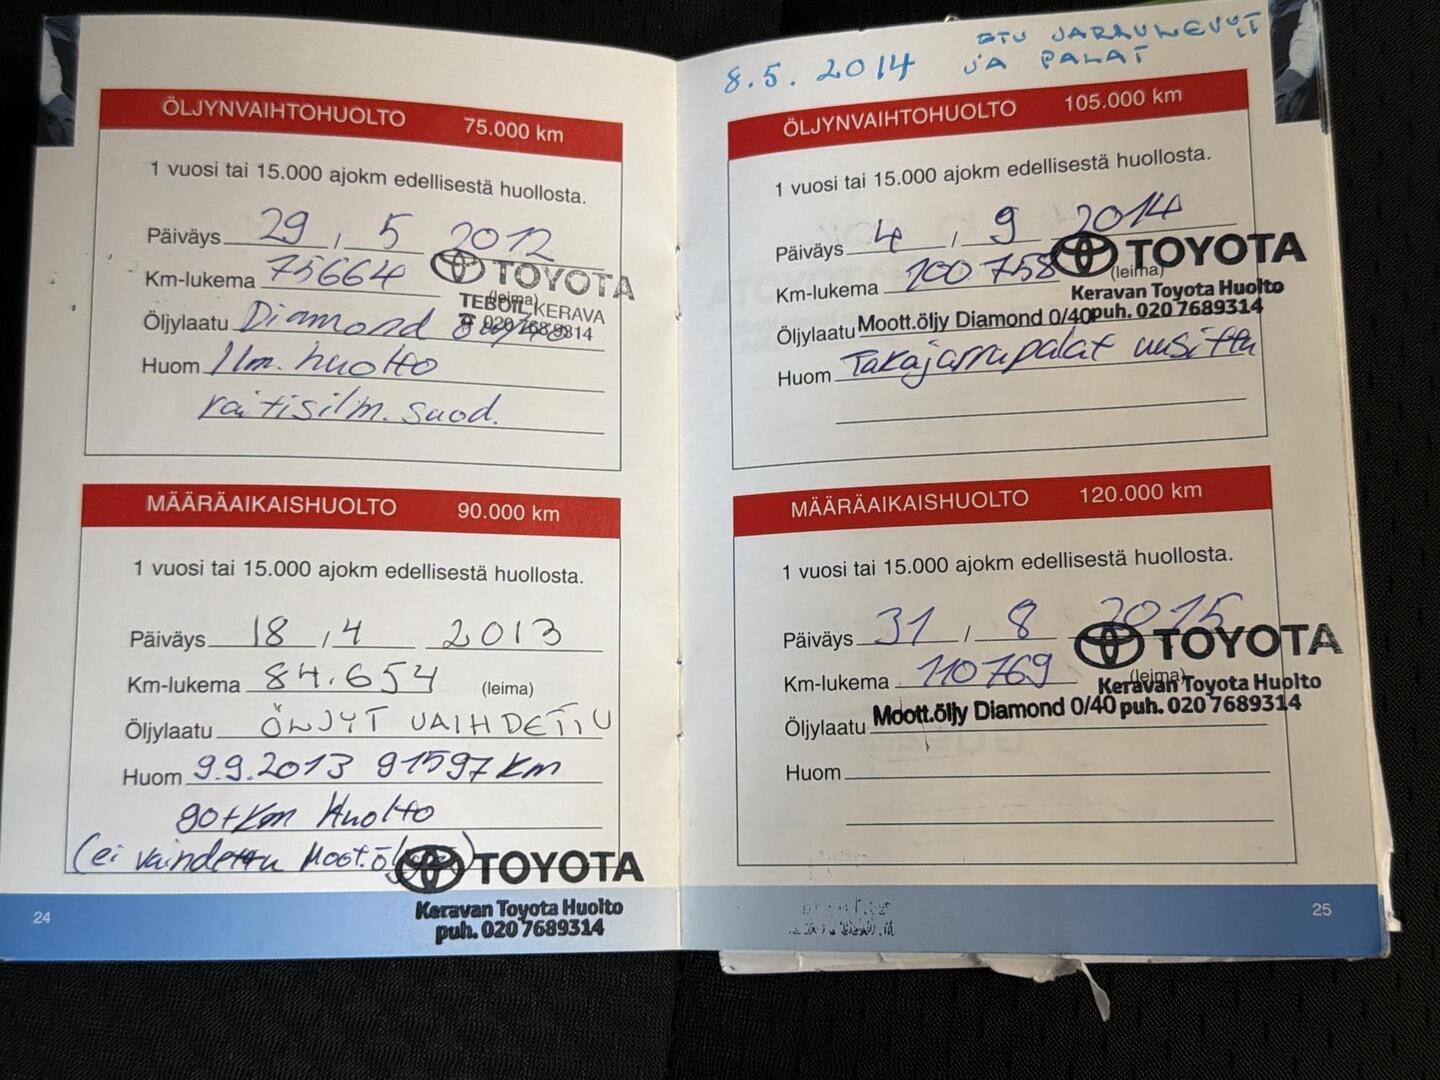 ÖLJYNVAIHTOHUOLTO 75.000 km
1 vuosi tai 15.000 ajokm edellisestä huollosta.
Päiväys 29 , 5 2012
Km-lukema 75664
TOYOTA
(leima)
TEBOIL KERAVA
☎ 020 768 9314
Öljylaatu Diamond
Huom Ilm. huolto
raitisilm. suod.
MÄÄRÄAIKAISHUOLTO 90.000 km
1 vuosi tai 15.000 ajokm edellisestä huollosta.
Päiväys 18 , 4 2013
Km-lukema 84.654 (leima)
Öljylaatu ÖLJYT VAIHDETTU
Huom 9.9.2013 91597 km
90tkm Huolto
(ei vaihdettu Moot.öljyä)
TOYOTA
Keravan Toyota Huolto
puh. 020 7689314
24
8.5.2014 ETU JARRULEVYT
JA PALAT
ÖLJYNVAIHTOHUOLTO 105.000 km
1 vuosi tai 15.000 ajokm edellisestä huollosta.
Päiväys 4 , 9 2014
TOYOTA
Km-lukema 100 758 (leima)
Keravan Toyota Huolto
puh. 020 7689314
Öljylaatu Moott.öljy Diamond 0/40
Huom Takajarrupalat uusittu
MÄÄRÄAIKAISHUOLTO 120.000 km
1 vuosi tai 15.000 ajokm edellisestä huollosta.
Päiväys 31 , 8 2015
TOYOTA
Km-lukema 110769 (leima)
Keravan Toyota Huolto
puh. 020 7689314
Öljylaatu Moott.öljy Diamond 0/40
Huom
25